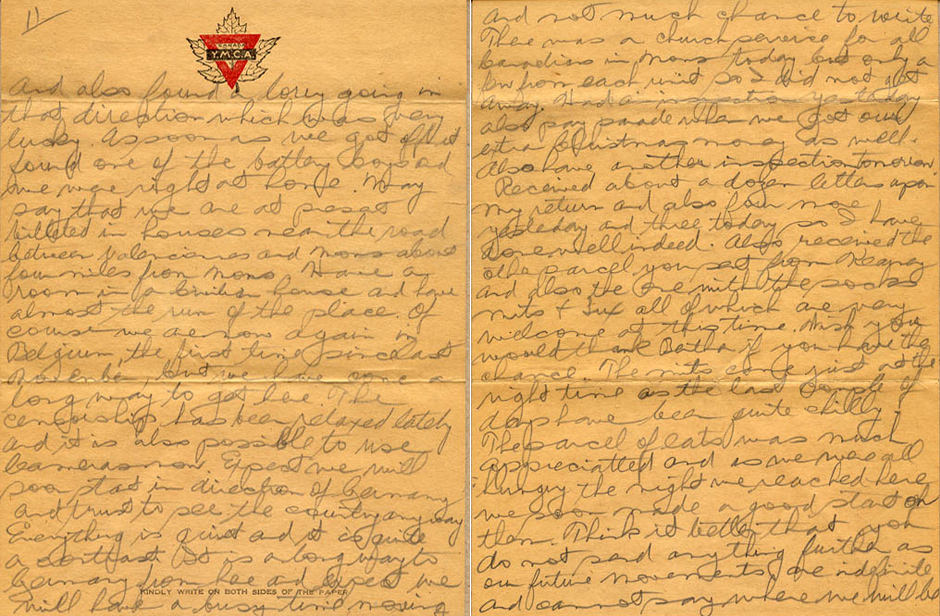 11
Y.M.C.A.
And also found a lorry going in
that direction which was very
lucky. As soon as we got off it
found one of the battery boys and
we were right at home. May
say that we are at present
billeted in houses near the road
between Valenciennes and Mons about
four miles from Mons. Have a
room in a civilian house and have
almost the run of the place. Of
course we are now again in
Belgium, the first time since last
November, but we have come a
long way to get here. The
censorship has been relaxed lately
and it is also possible to use
cameras now. Expect we will
soon start in direction of Germany
and trust to see the country anyway
Everything is quiet and it is quite
a contrast. It is a long way to
Germany from here and expect we
KINDLY WRITE ON BOTH SIDES OF THE PAPER
will have a busy time moving
and not much chance to write
There was a church service for all
Canadians in Mons today but only a
few from each unit so I did not get
away. Had an inspection yesterday
also pay parade when we got our
extra Christmas money as well.
Also have another inspection tomorrow.
Received about a dozen letters upon
my return and also four more
yesterday and three today so I have
done well indeed. Also received the
other parcel you sent from
and also the one with the socks
mits + all of which are very
welcome at this time. Wish you
would thank if you have the
chance. The mits come just at the
right time as the last couple of
days have been quite chilly.
The parcel of eats was much
appreciatted and as we were all
hungry the night we reached here
we soon made a good start on
them. Think it better that you
do not send anything further as
our future movements are indefinite
and cannot say where we will be